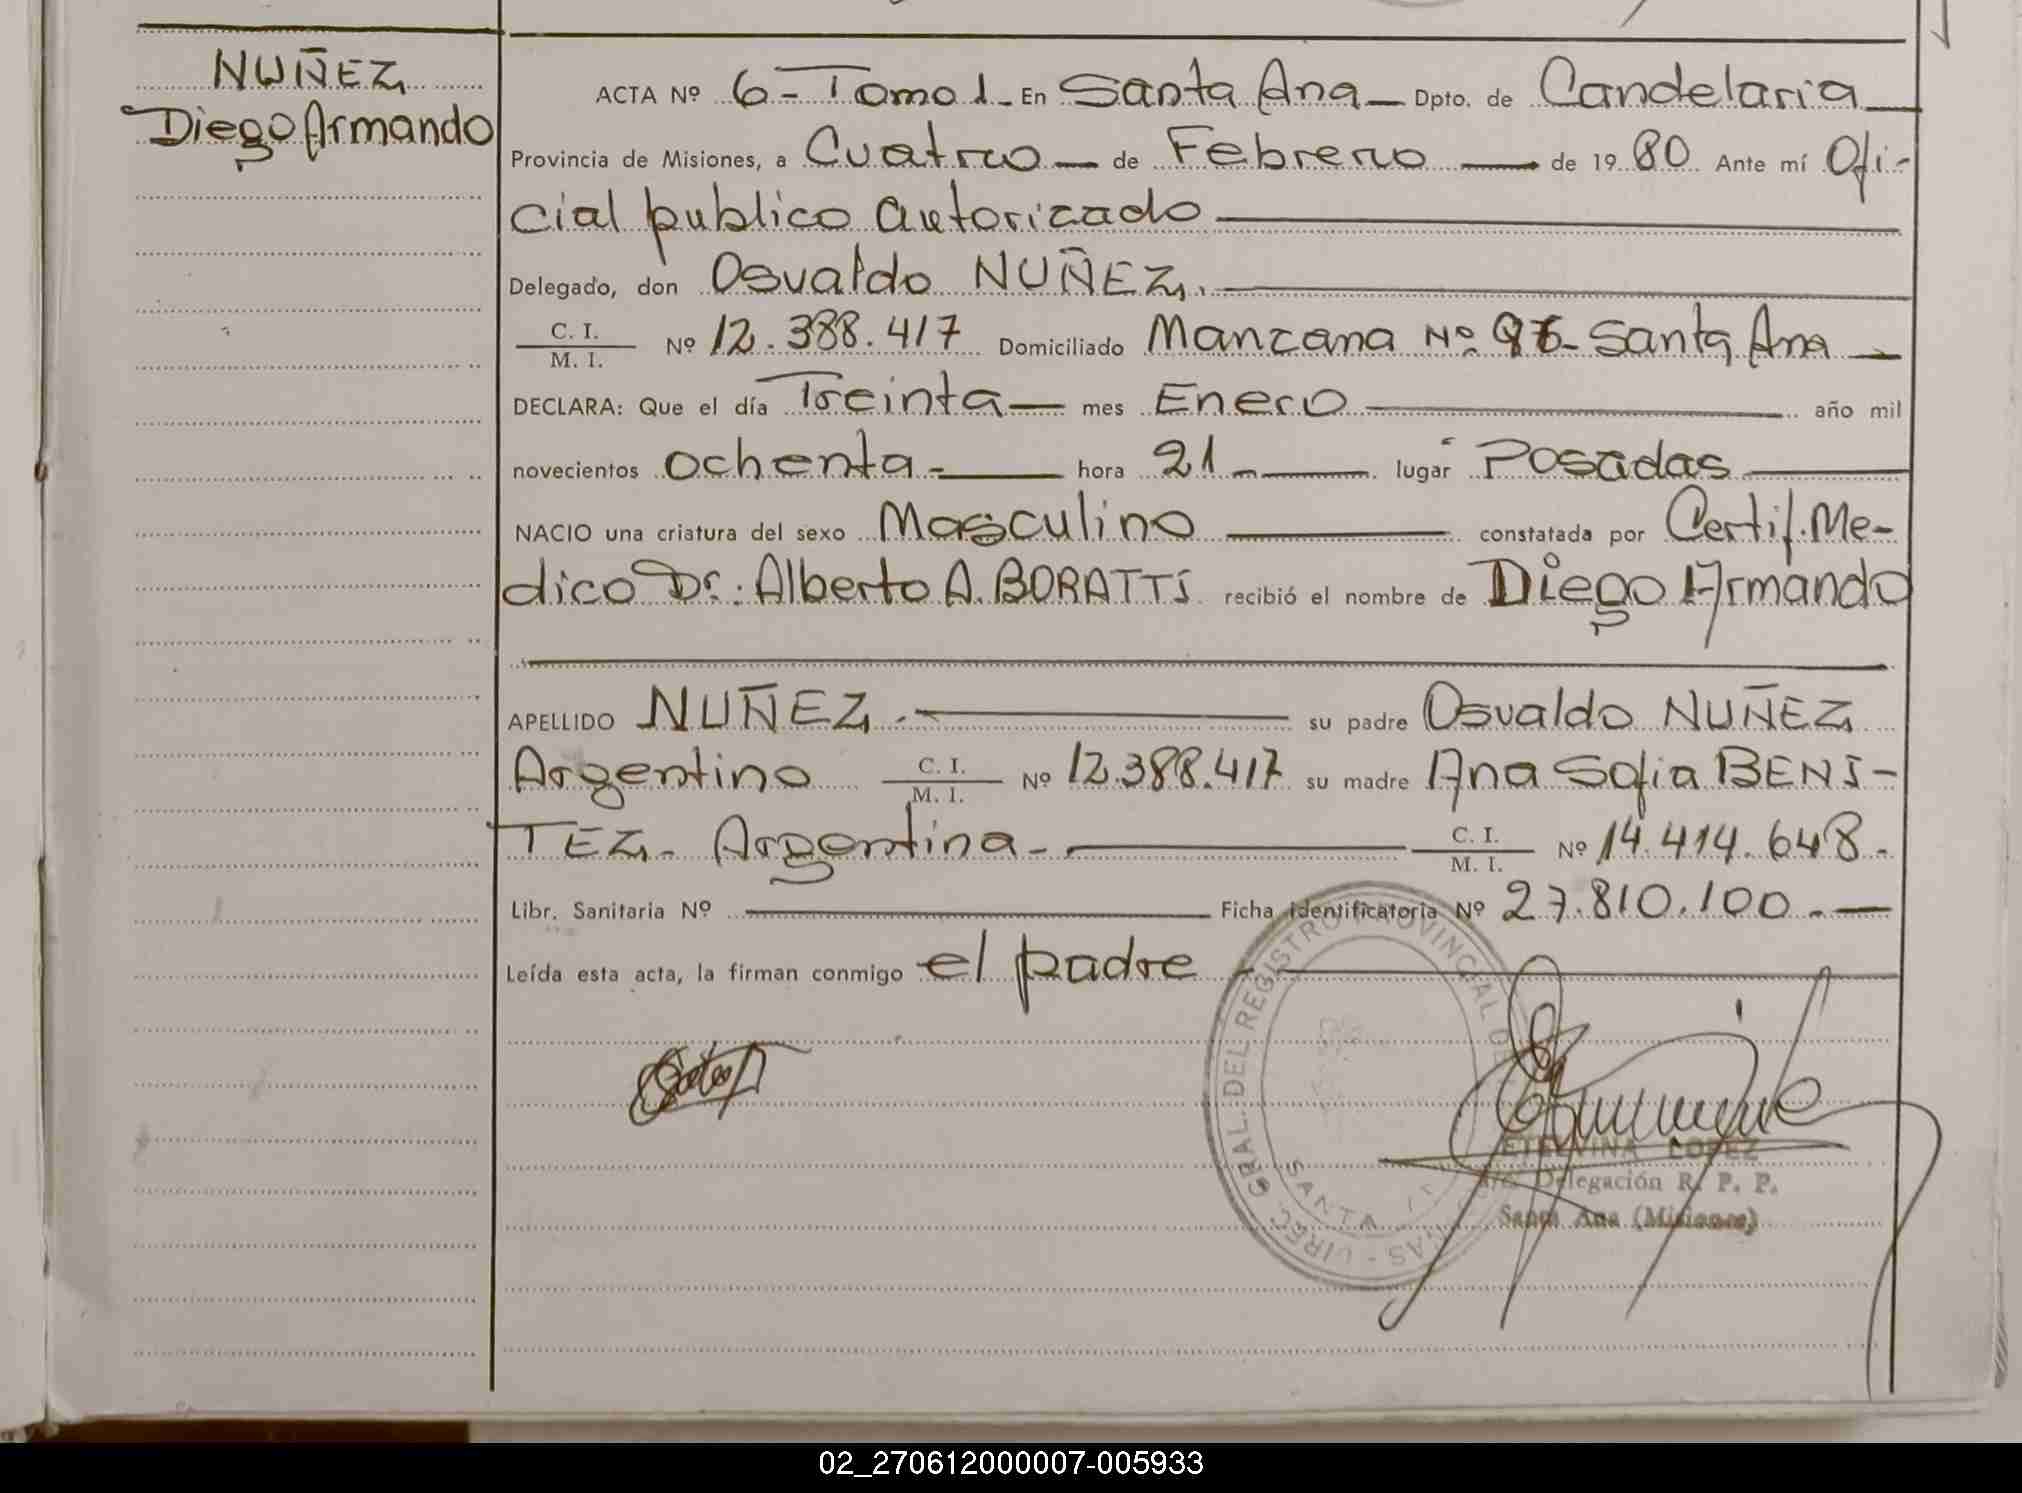 NUÑEZ
Diego Armando
ACTA Nº 6 - Tomo 1 - En Santa Ana - Dpto. de Candelaria
Provincia de Misiones, a Cuatro - de Febrero - de 19 80 Ante mí Ofi-
cial publico autorizado
Delegado, don Osvaldo NUÑEZ.
C. I.
M. I. Nº 12.388.417 Domiciliado Manzana Nº - Santa Ana -
DECLARA: Que el día Treinta - mes Enero año mil
novecientos ochenta - hora 21 - lugar Posadas
NACIO una criatura del sexo Masculino constatada por Certif. Me-
dico Dr.: Alberto A. BORATTI recibió el nombre de Diego Armando
APELLIDO NUÑEZ. - su padre Osvaldo NUÑEZ
Argentino C. I.
M. I. Nº 12.388.417 su madre Ana Sofia BENI-
TEZ - Argentina - C. I.
M. I. Nº 14.414.648 -
Libr. Sanitaria Nº Ficha Identificatoria Nº 27.810.100 . -
Leída esta acta, la firman conmigo el padre -
GRAL. DEL REGISTRO PROVINCIAL DE
SANTA
ETELVINA LOPEZ
Delegación R. P. P.
Santa Ana (Misiones)
02_270612000007-005933